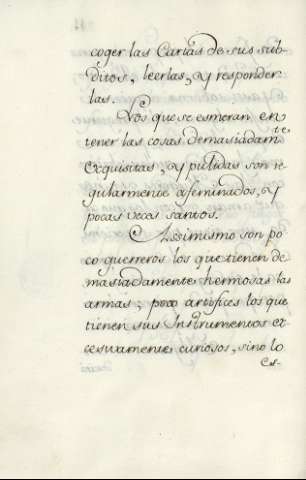 coger las Cartas de sus sub-
ditos, leerlas, y responder
las.
Los que se esmeran en
tener las cosas demasiadam.te
exquisitas, y pulidas son re
gularmente afeminados, y
pocas veces santos.
Assimismo son po
co guerreros los que tienen de
masiadamente hermosas las
armas; poco artifices los que
tienen sus Instrumentos ex
cesivamente curiosos, sino lo
es-